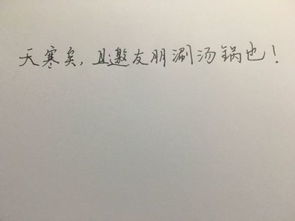 天寒矣，且邀友朋涮汤锅也！